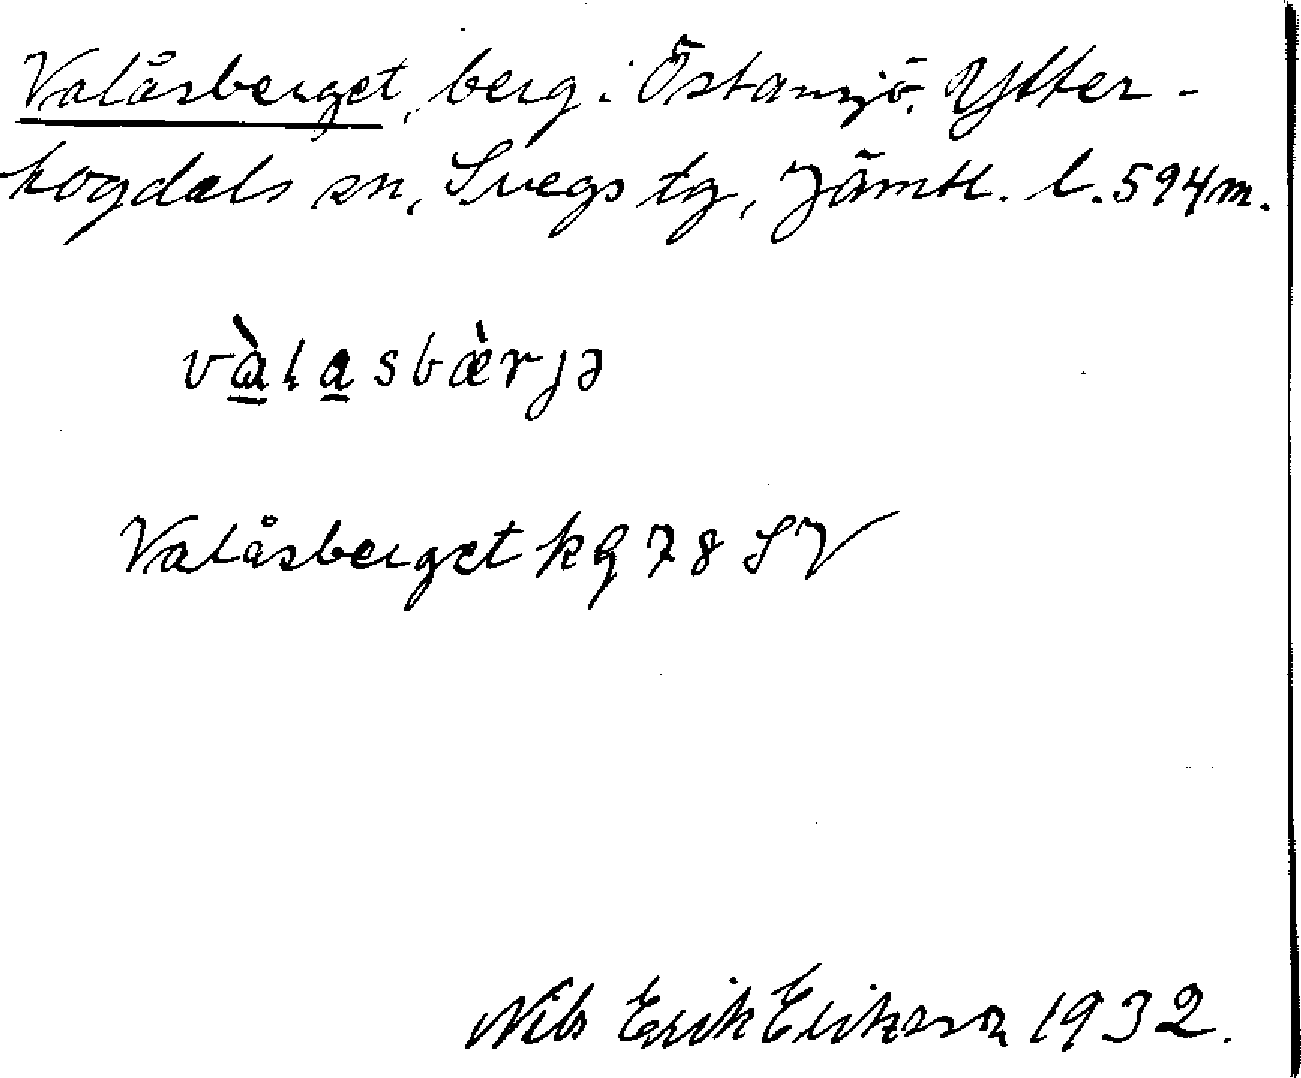 Valåsberget, berg i Östansjö, Ytter-
hogdals sn, Svegs tg, Jämtl. l. 594 m.
vàlasbæ̀rjə
Valåsberget kg 78 SV
Nils Erik Erikson 1932.